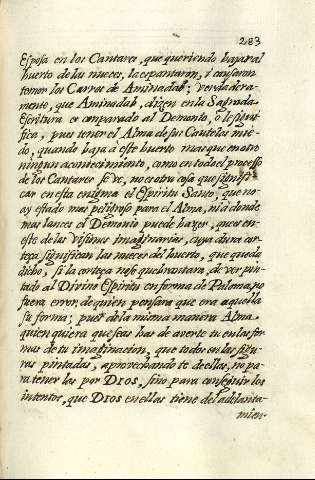 283
Esposa en los Cantares, que queriendo bajar al
huerto de las nueces, la espantaron, i causaron
temor los Carros de Aminadab; verdadera-
mente, que Aminadab, dizen en la Sagrada
Escritura es comparado al Demonio, o le signi-
fica, pues tener el Alma de sus Cautelas mie-
do, quando baja à este huerto mas que en otro
ningun acontecimiento, como en todo el processo
de los Cantares se vè, no es otra cosa que signifi-
car en esta enigma el Espiritu Santo, que no
ay estado mas peligroso para el Alma, ni à donde
mas lances el Demonio puede hazer, que es en
este de las Visiones imaginarias, cuya dura cor-
teza significan las nueces del huerto, que queda
dicho, si la corteza no se quebrantara, de ver pin-
tado al Divino Espiritu en forma de Paloma, no
fuera error, de quien pensara que era aquella
su forma; pues de la mesma manera Alma
quien quiera que seas has de averte tu en las for-
mas de tu imaginacion, que todos en las figu-
ras pintadas, aprovechando te de ellas, no pa-
ra tener las por DIOS, sino para conseguir los
intentos, que DIOS en ellas tiene de l adelanta-
mien-